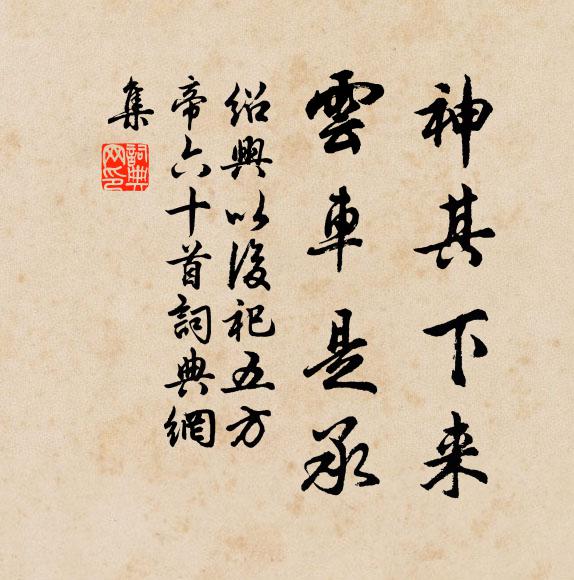 神其下来
雲車是承
紹興以後祀五方
帝六十首詞典網
集
詞典網印